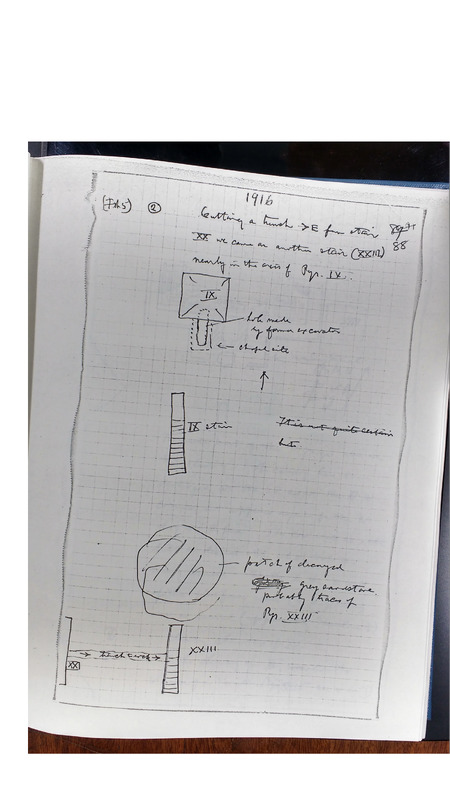 1916
(Feb 5) ②
Cutting a trench > E from stair
XX we came on another stair (XXIII) 88
nearly in the axis of Pyr. IX.
IX
hole made
by former excavator
← chapel site
IX stair
This is not quite certain
but
patch of decayed
grey sandstone
probably traces of
Pyr. XXIII
XX
→ trench →
XXIII